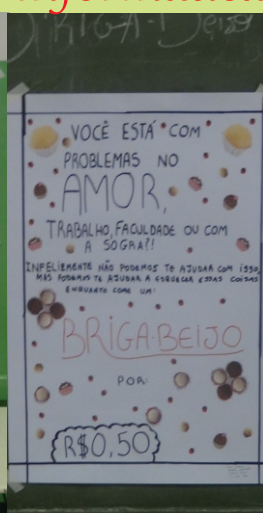 BRIGA-Beijo
VOCÊ ESTÁ COM
PROBLEMAS NO
AMOR,
TRABALHO, FACULDADE OU COM
A SOGRA?!
INFELIZMENTE NÃO PODEMOS TE AJUDAR COM ISSO,
MAS PODEMOS TE AJUDAR A ESQUECER ESSAS COISAS
ENQUANTO COME UM:
BRIGA-BEIJO
POR:
R$0,50